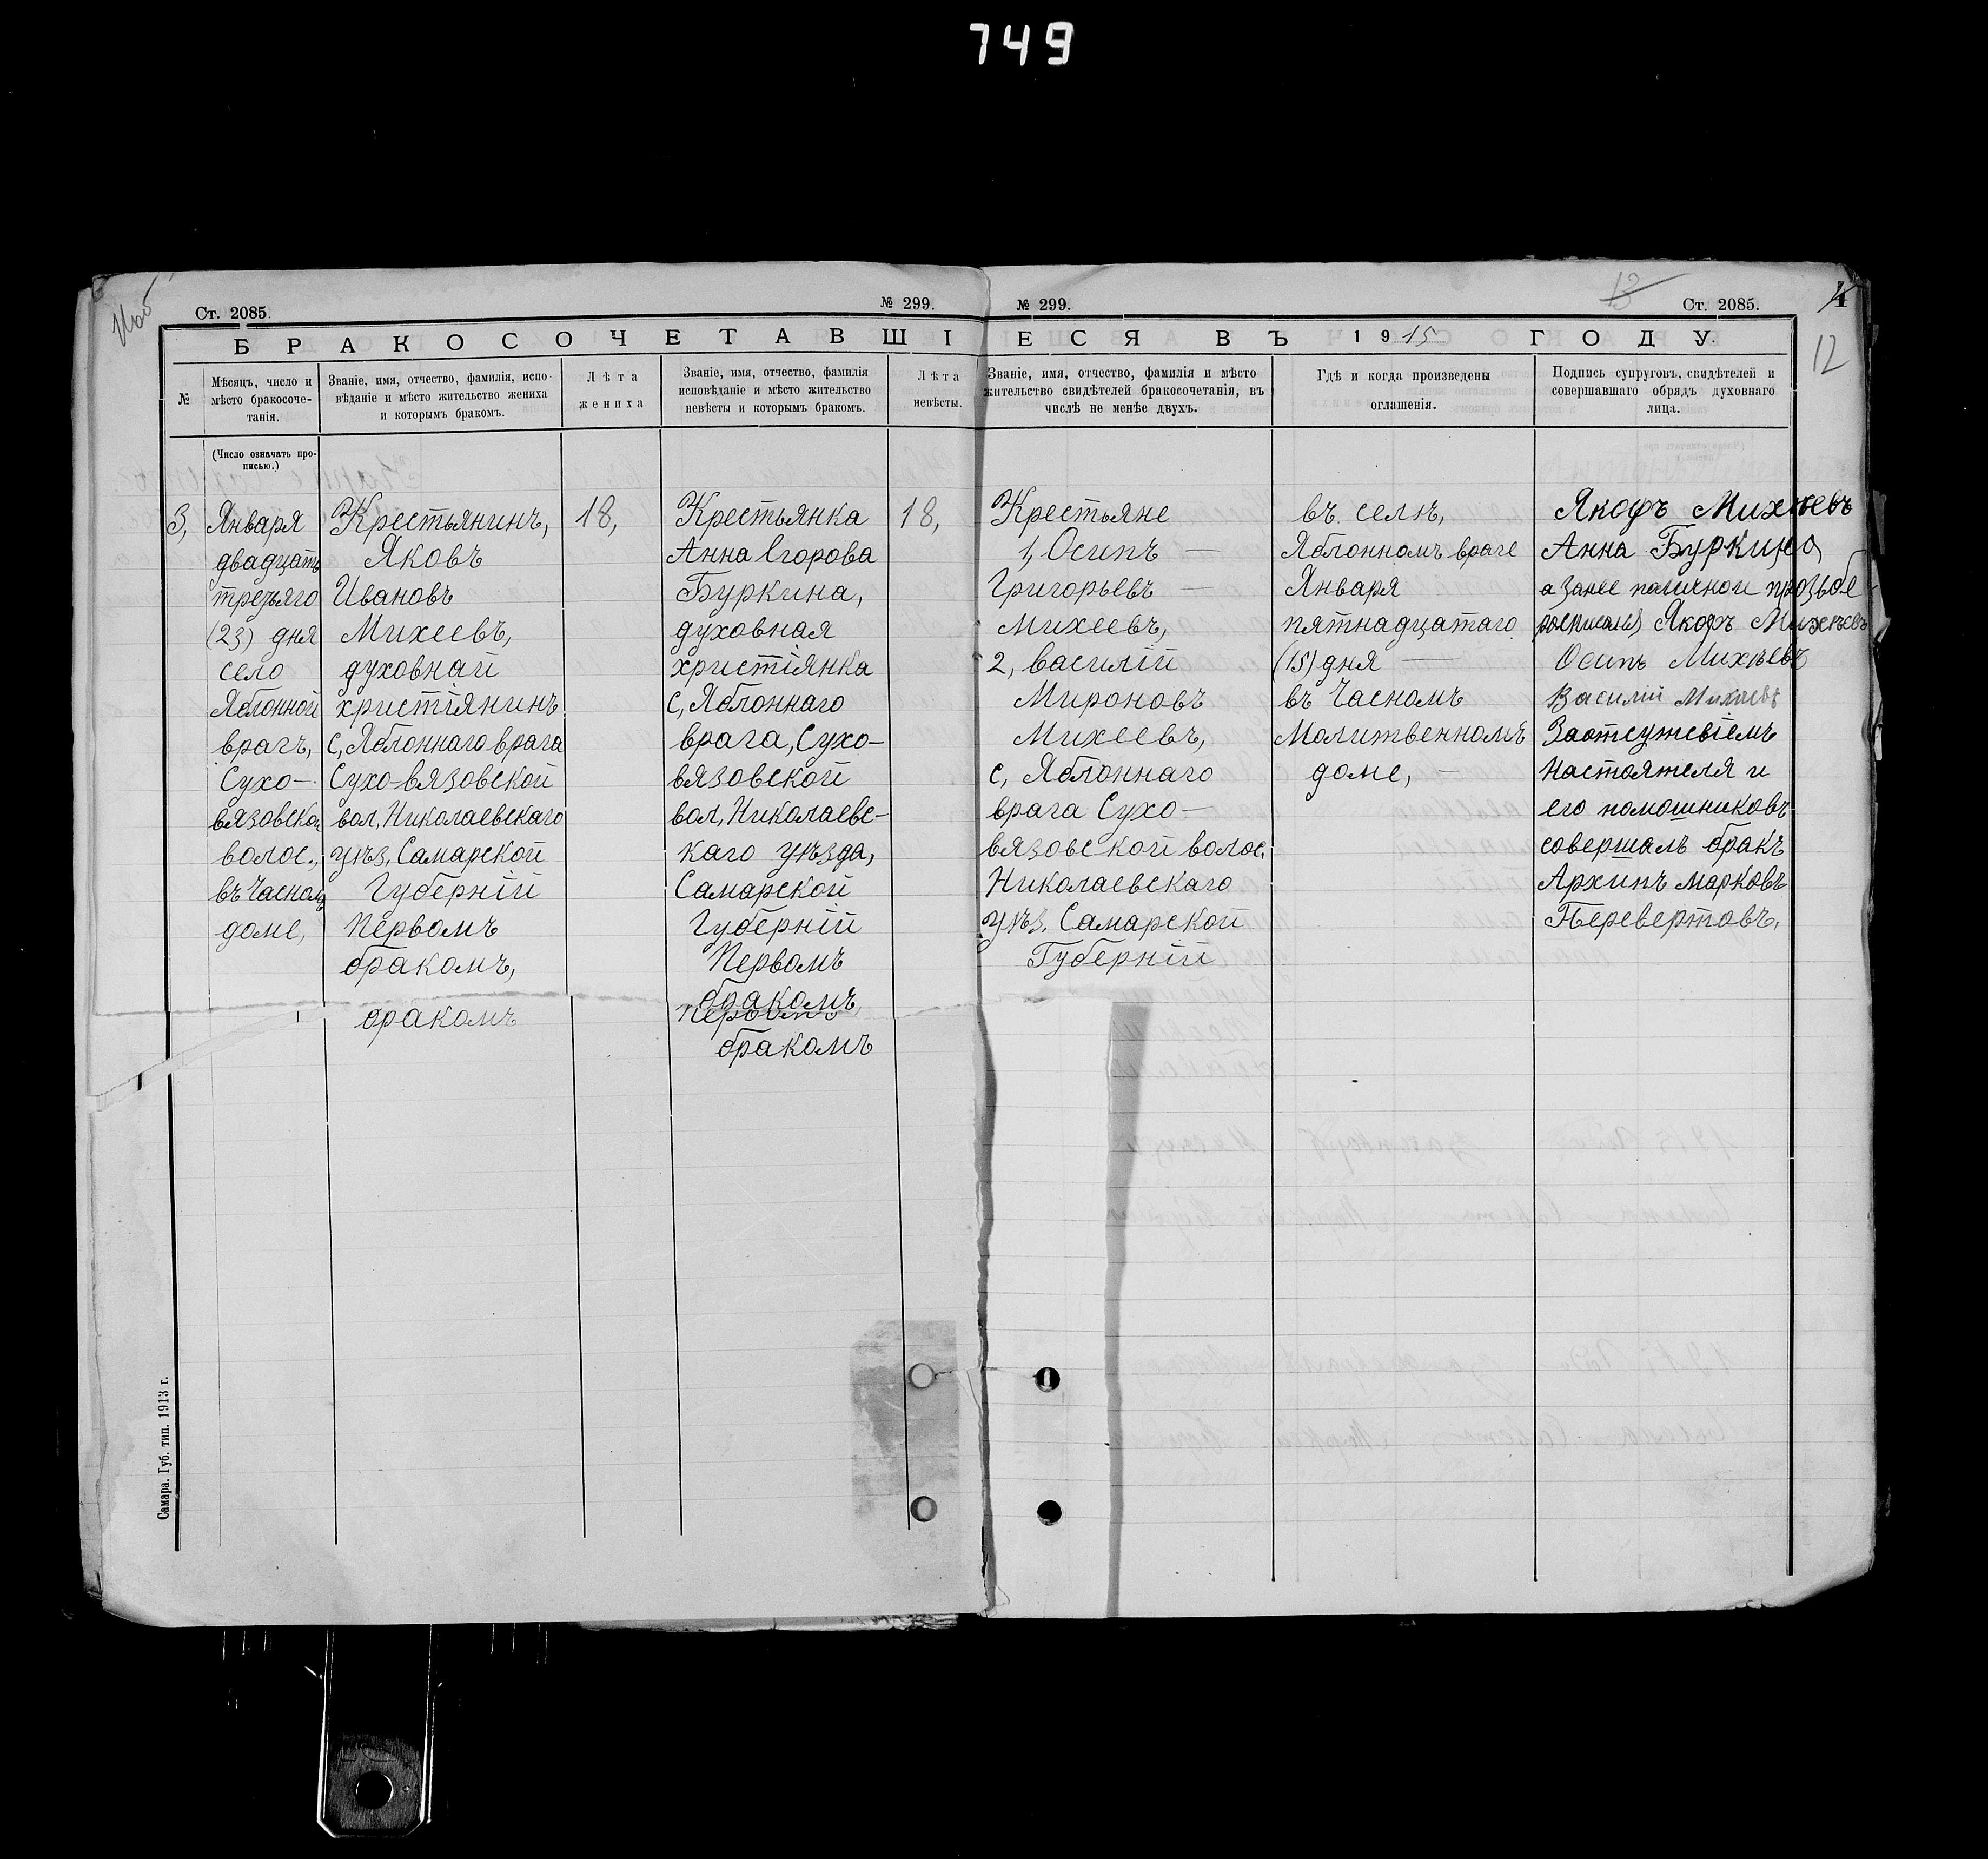 749
Ст. 2085.
№ 299.
№ 299.
13
Ст. 2085.
4
12
БРАКОСОЧЕТАВШІЕСЯ ВЪ 1915 ГОДУ.
№
Мѣсяцъ, число и
мѣсто бракосоче-
танія.
Званіе, имя, отчество, фамилія, испо-
вѣданіе и мѣсто жительство жениха
и которымъ бракомъ.
Лѣта
жениха
Званіе, имя, отчество, фамилія
исповѣданіе и мѣсто жительство
невѣсты и которымъ бракомъ.
Лѣта
невѣсты.
Званіе, имя, отчество, фамилія и мѣсто
жительство свидѣтелей бракосочетанія, въ
числѣ не менѣе двухъ.
Гдѣ и когда произведены
оглашенія.
Подпись супруговъ, свидѣтелей и
совершавшаго обрядъ духовнаго
лица.
(Число означать про-
писью.)
3,
Января
двадцать
третьяго
(23) дня
село
Яблонной
врагъ,
Сухо-
вязовской
волос.,
въ Часномъ
доме,
Крестьянинъ,
Яковъ
Ивановъ
Михеевъ,
духовнай
христіянинъ
с, Яблоннаго врага
Сухо-вязовской
вол, Николаевскаго
уѣз, Самарской
Губерній
Первомъ
бракомъ,
бракомъ
18,
Крестьянка
Анна Егорова
Буркина,
духовная
христіянка
с, Яблоннаго
врага, Сухо-
вязовской
вол, Николаевс-
каго уѣзда,
Самарской
Губерній
Первомъ
бракомъ,
Первомъ
бракомъ
18,
Крестьяне
1, Осипъ —
Григорьевъ —
Михеевъ,
2, Василій
Мироновъ
Михеевъ,
с, Яблоннаго
врага Сухо-
вязовской волос.
Николаевскаго
уѣз, Самарской
Губерній
въ селѣ,
Яблонномъ враге
Января
пятнадцатаго
(15) дня —
въ Часномъ
Молитвенномъ
доме, —
Якофъ Михѣевъ
Анна Буркина
а Занее
Якофъ Михѣевъ
Осипъ Михѣевъ
Василій Михаевъ
Заотсутсвіемъ
Настоятеля и
его помошниковъ
совершалъ бракъ
Архипъ Марковъ
Перевертовъ,
Самара. Губ. тип. 1913 г.